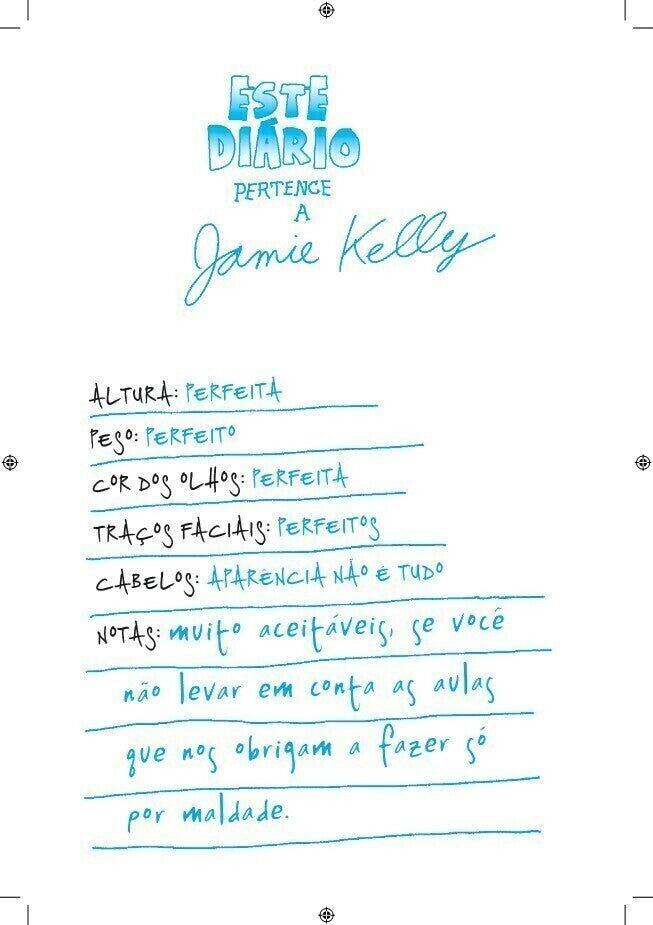 ESTE
DIÁRIO
PERTENCE
A
Jamie Kelly
ALTURA: PERFEITA
PESO: PERFEITO
COR DOS OLHOS: PERFEITA
TRAÇOS FACIAIS: PERFEITOS
CABELOS: APARÊNCIA NÃO É TUDO
NOTAS: muito aceitáveis, se você
não levar em conta as aulas
que nos obrigam a fazer só
por maldade.